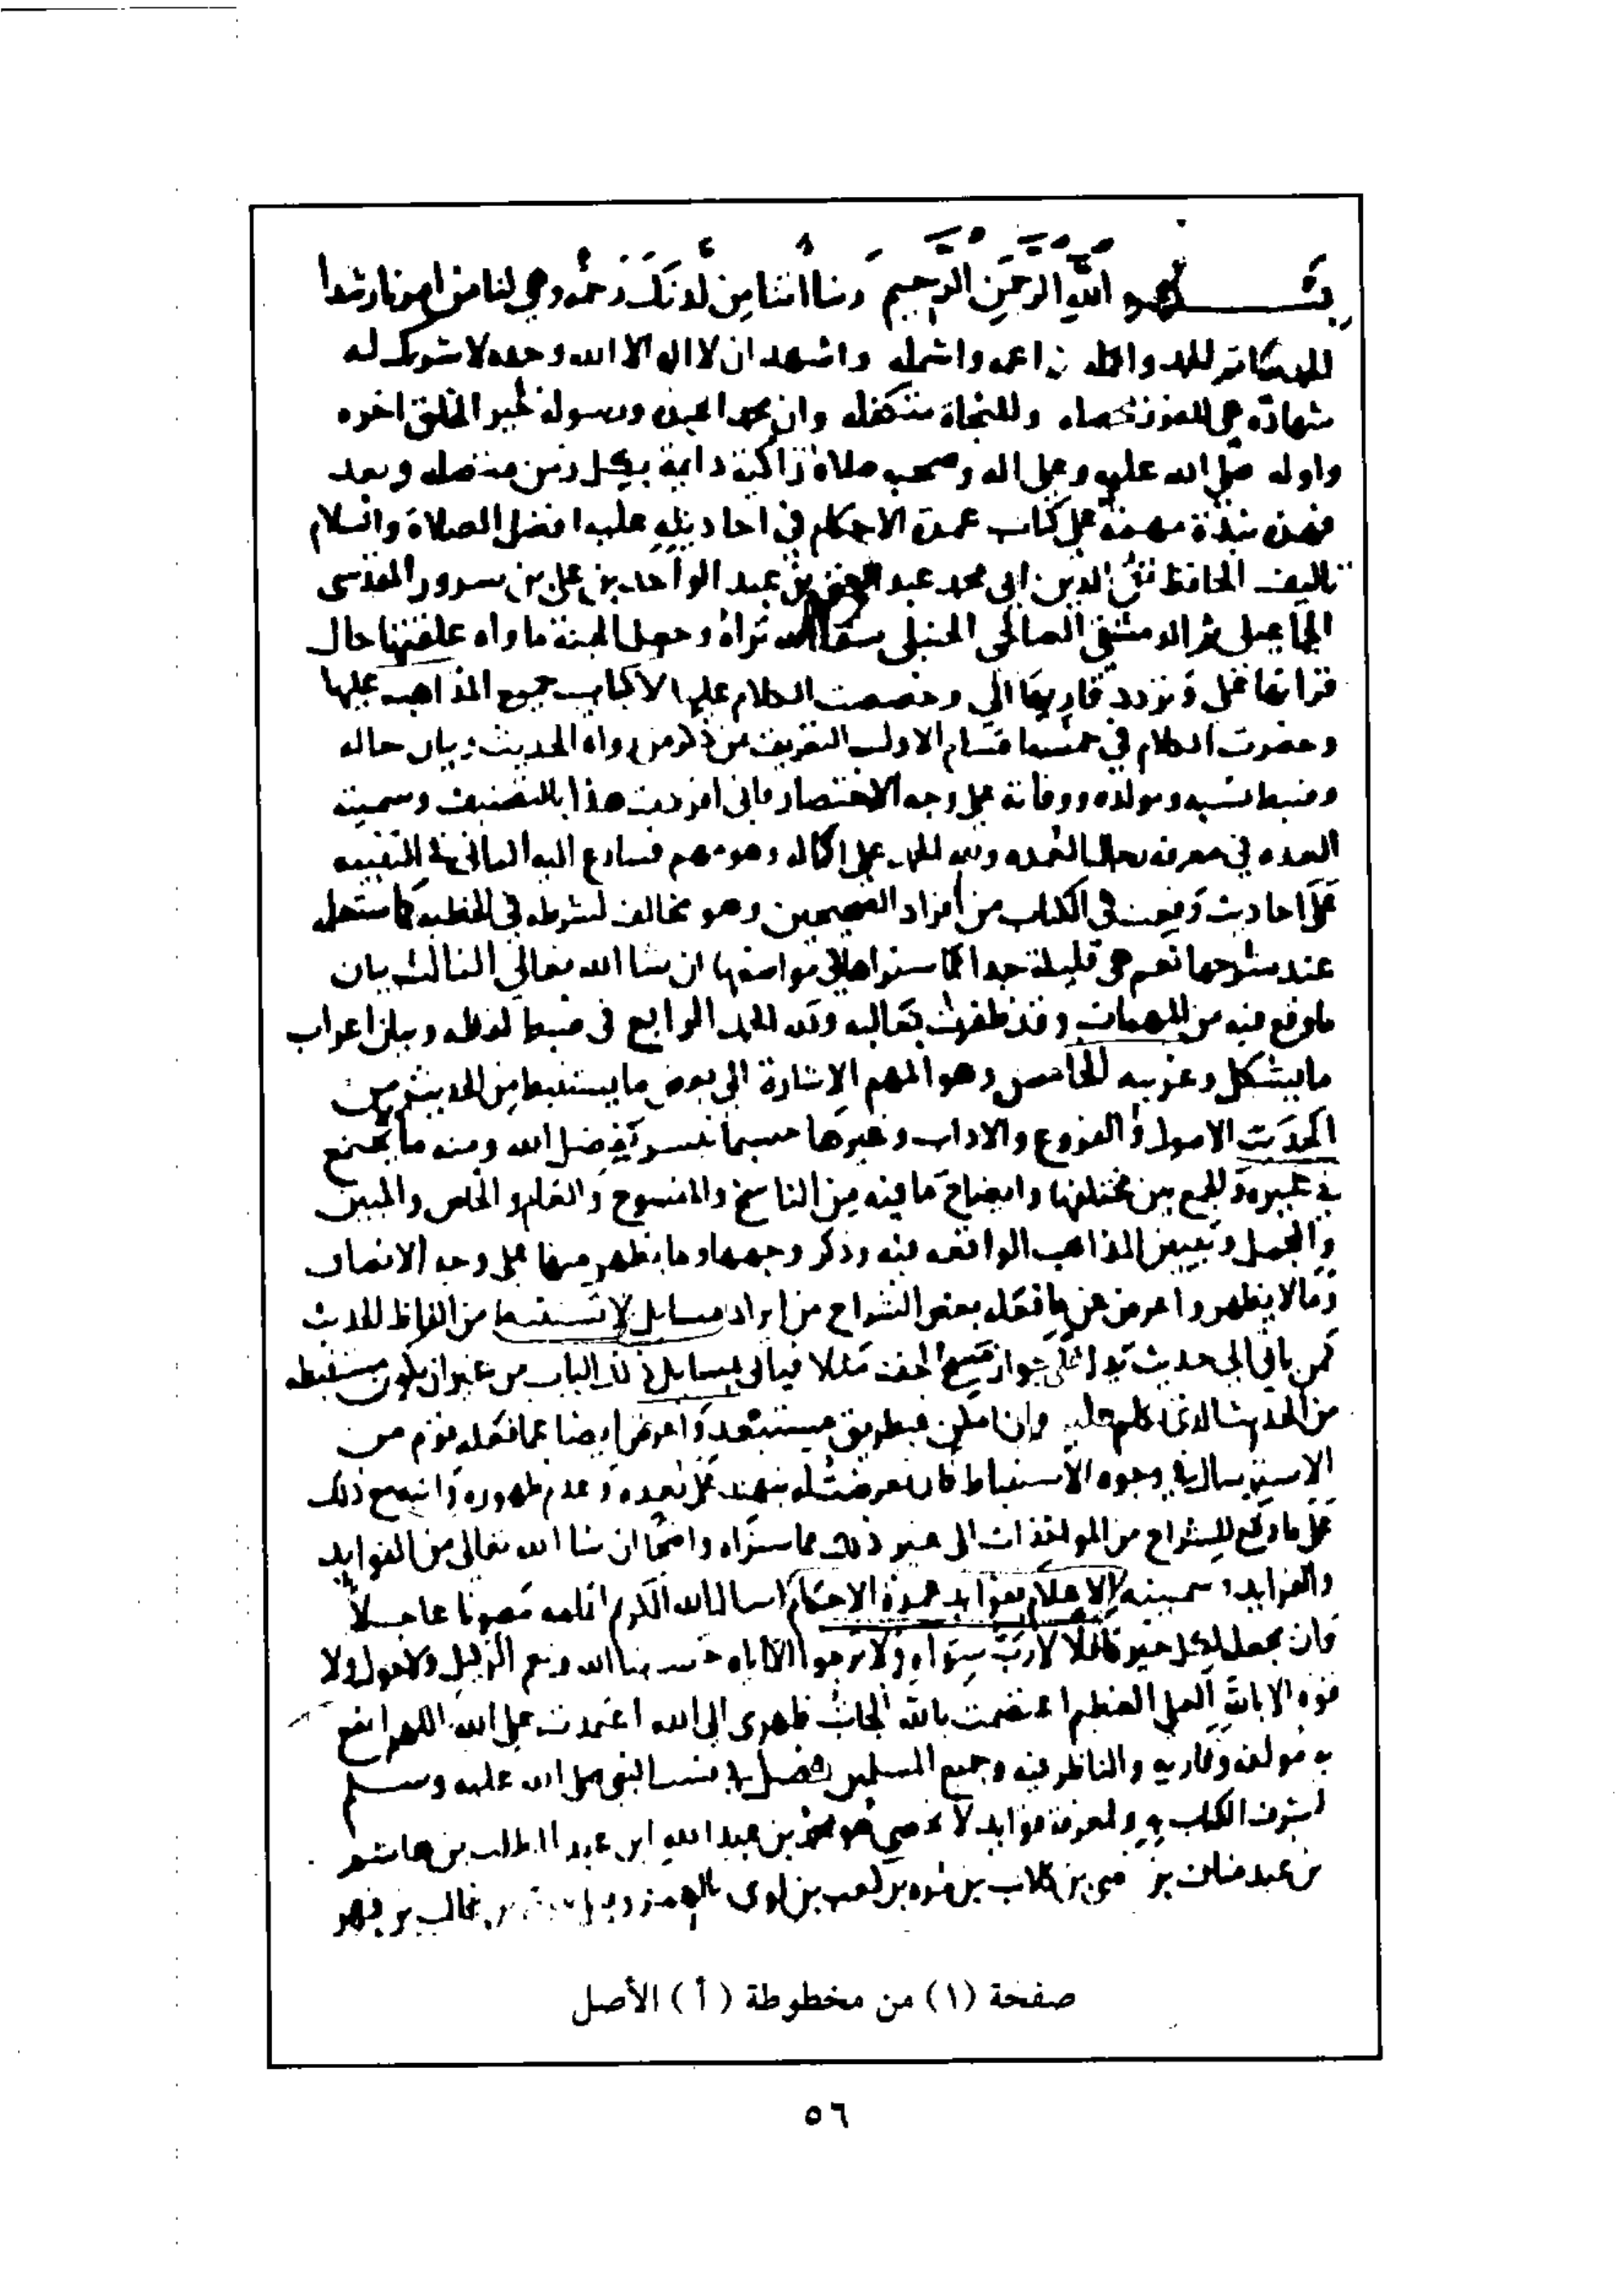 بسم الله الرحمن الرحيم ربنا اتنا من لدنك رحمه وهي لنا من امرنا رشدا
واشهد ان لا اله الا الله وحده لا شريك له
شهادة هي للفوز وللنجاة متكفله وان محمدا عبده ورسوله خير الخلق اخره
واوله صلى الله عليه وعلى اله وصحبه صلاة زاكية دايمة بكل زمن متصله وبعد
فهذه نبذة مهمة على كتاب عمدة الاحكام في احاديثه عليه افضل الصلاة والسلام
تاليف الحافظ تقي الدين ابي محمد عبد الغني بن عبد الواحد بن علي بن سرور المقدسي
الجماعيلي ثم الدمشقي الصالحي الحنبلي سقى الله ثراه وجعل الجنة ماواه علقتها حال
قراتها علي وتردد قاريها الي
وحصرت الكلام في خمسة اقسام الاول التعريف بمن ذكر من رواة الحديث وبيان حاله
وضبط نسبه ومولده ووفاته على وجه الاختصار فاني افردت هذا بالتصنيف وسميته
العده في معرفة رجال العمده ولله الحمد على اكماله وهو مهم فسارع اليه الثاني في التنبيه
على احاديث وقعت في الكتاب من افراد الصحيحين وهو مخالف لشرطه في الخطبه كما ستعلمه
عند شرحها نعم هي قليلة جدا كما ستراها في مواضعها ان شا الله تعالى الثالث بيان
ما وقع فيه من المبهمات وقد ظفرت بغالبه ولله الحمد الرابع في ضبط لفظه وبيان اعراب
ما يشكل وغريبه الخامس وهو المهم الاشارة الى بعض ما يستنبط من الحديث من
الاصول والفروع والاداب وغيرها حسبما تيسر بفضل الله ومنه ما يجتمع
في غيره والجمع بين مختلفها وايضاح ما فيه من الناسخ والمنسوخ والعام والخاص والمبين
والمجمل وتبيين المذاهب الواقعه فيه وذكر وجهها وما يظهر منها على وجه الانصاف
وما لا يظهر واعرض عن ما فعله بعض الشراح من ايراد مسايل لا تستنبط من الفاظ الحديث
كمن ياتي الى حديث يدل على جواز مسح الخف مثلا فياتي بمسايل ذلك الباب من غير ان تكون مستنبطه
من الحديث الذي تكلم عليه وان امكن فبطريق مستبعد واعرض ايضا عما فعله قوم من
الاسترسال في وجوه الاستنباط فان تعرضت له نبهت على بعده وعدم ظهوره وانبه مع ذلك
على ما وقع للشراح من المواخذات الى غير ذلك مما ستراه واضحا ان شا الله تعالى من الفوايد
والفرايد وسميته الاعلام بفوايد عمدة الاحكام اسال الله الكريم اتمامه مصونا عاجلا
وان يجعل لكل خير فاعلا لا رب سواه ولا مرجو الا اياه حسبنا الله ونعم الوكيل ولا حول ولا
قوة الا بالله العلي العظيم اعتصمت بالله الجات ظهري الى الله اعتمدت على الله اللهم انفع
به مولفه وقاريه والناظر فيه وجميع المسلمين فصل في نسب النبي صلى الله عليه وسلم
لشرف الكتاب به ولمعرفة فوايد لا تحصى هو محمد بن عبد الله ابن عبد المطلب بن هاشم
بن عبد مناف بن قصي بن كلاب بن مره بن كعب بن لوي بالهمز غالب بن فهر
صفحة (١) من مخطوطة (أ) الأصل
٥٦